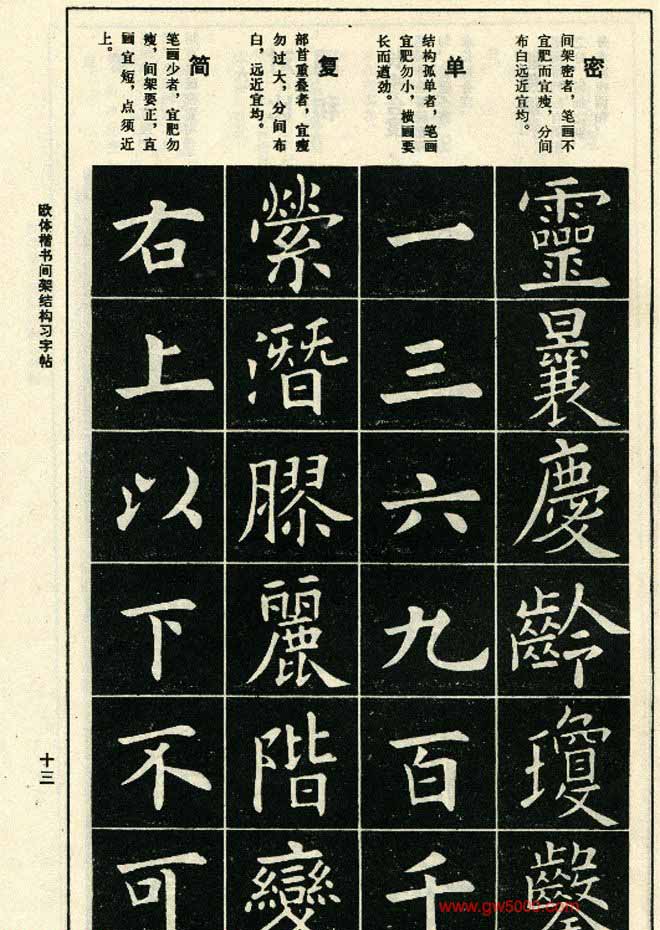 密
间架密者，笔画不
宜肥而宜瘦，分间
布白远近宜均。
靈
襄
慶
齡
瓊
單
单
结构孤单者，笔画
宜肥勿小，横画要
长而遒劲。
一
三
六
九
百
千
复
部首重叠者，宜瘦
勿过大，分间布
白，远近宜均。
縈
潛
膠
麗
階
變
简
笔画少者，宜肥勿
瘦，间架要正，直
画宜短，点须近
上。
右
上
以
下
不
可
欧体楷书间架结构习字帖
十三
www.gw5000.com